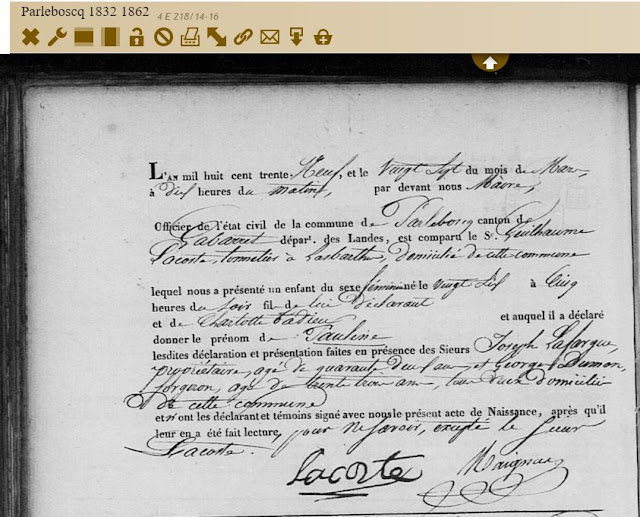 Parleboscq 1832 1862 4 E 218/14-16
L'AN mil huit cent trente-Neuf, et le vingt Sept du mois de Mars
à dix heures du matin, par devant nous Maire,
Officier de l'état civil de la commune de Parleboscq canton de
Gabarret départ. des Landes, est comparu le Sr. Guilhaume
Lacoste, tonnelier à Lasbarthes, domicilié de cette commune
lequel nous a présenté un enfant du sexe féminin né le vingt Six à Cinq
heures du soir fil de lui déclarant
et de Charlotte et auquel il a déclaré
donner le prénom de Pauline
lesdites déclaration et présentation faites en présence des Sieurs Joseph Lafargue,
propriétaire, agé de quarante deux ans, et George Dumon,
forgeron, agé de trente trois ans, tous deux domiciliés
de cette commune
et n'ont les déclarant et témoins signé avec nous le présent acte de Naissance, après qu'il
leur en a été fait lecture, pour ne savoir, excepté le Sieur
Lacoste.
Lacoste